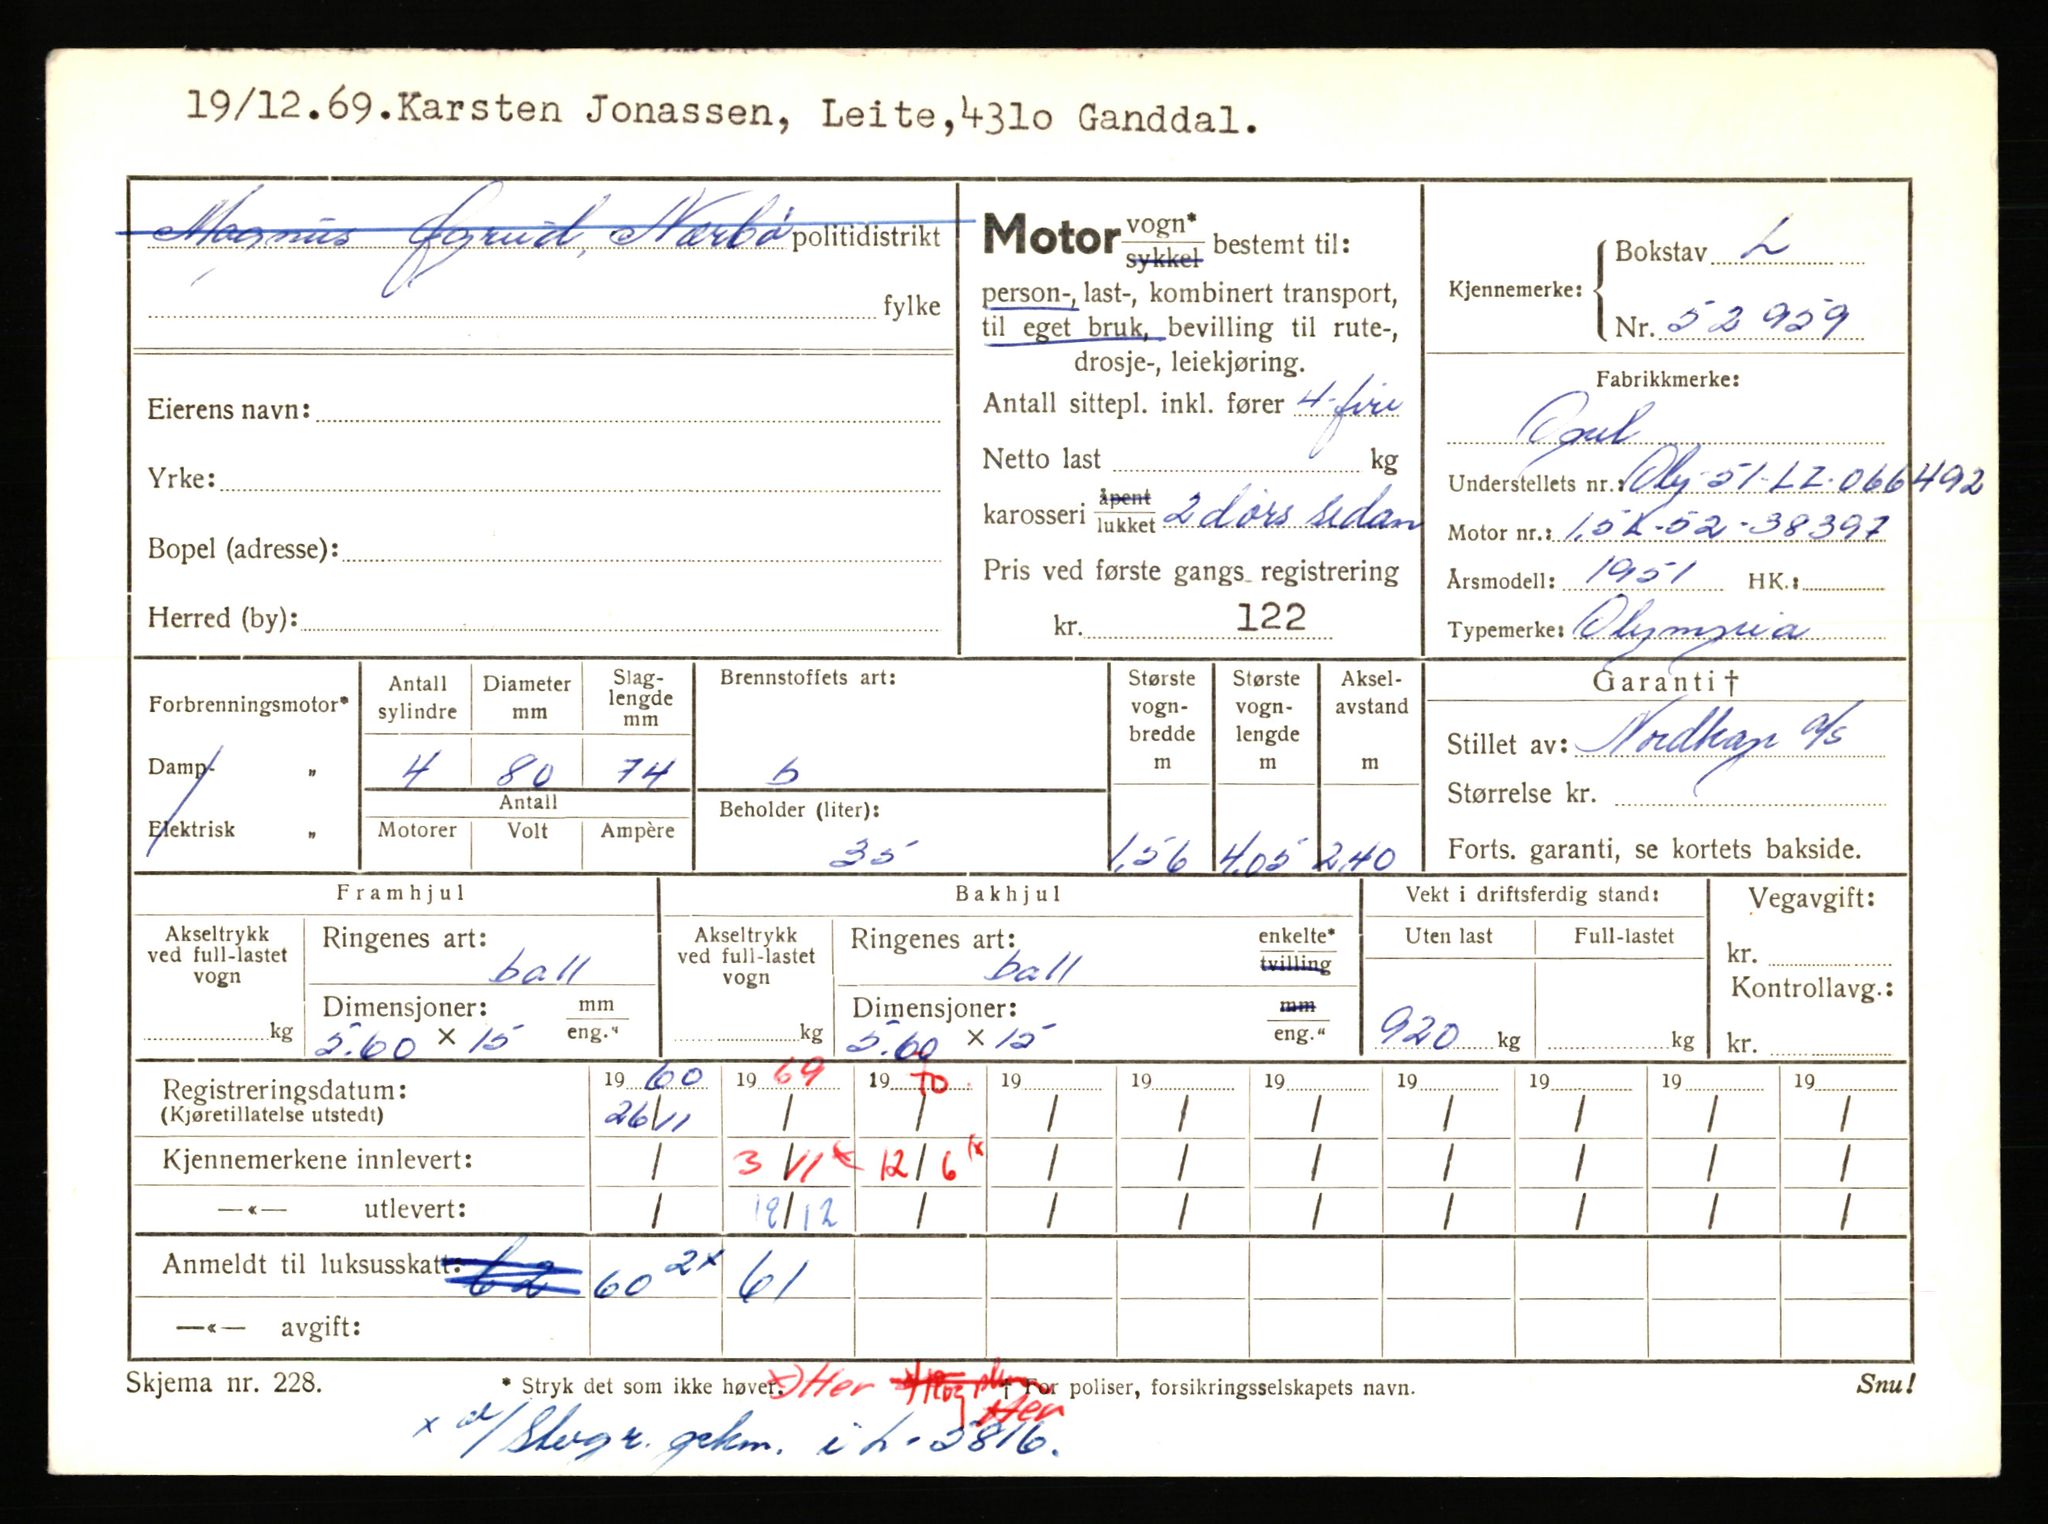 19/12.69.Karsten Jonassen, Leite,431o Ganddal.
Magnus Nærbø politidistrikt
fylke
Eierens navn:
Yrke:
Bopel (adresse):
Herred (by):
Motor vogn* sykkel bestemt til:
person-, last-, kombinert transport,
til eget bruk, bevilling til rute-,
drosje-, leiekjøring.
Antall sittepl. inkl. fører 4-fire
Netto last kg
karosseri åpent lukket 2 dørs sedan
Pris ved første gangs registrering
kr. 122
Kjennemerke: Bokstav L
Nr. 52959
Fabrikkmerke:
Opel
Understellets nr.: Oly-51-LZ-066492
Motor nr.: 1,5L-52-38397
Årsmodell: 1951 HK.:
Typemerke: Olympia
Forbrenningsmotor*
Damp- „
Elektrisk „
Antall sylindre 4
Diameter mm 80
Slaglengde mm 74
Antall
Motorer Volt Ampère
Brennstoffets art:
b
Beholder (liter):
35
Største vogn-bredde m 1,56
Største vogn-lengde m 4,05
Aksel-avstand m 2,40
Garanti †
Stillet av: Nordkap a/s
Størrelse kr.
Forts. garanti, se kortets bakside.
Framhjul
Akseltrykk ved full-lastet vogn kg
Ringenes art: ball
Dimensjoner: mm eng."
5.60 × 15
Bakhjul
Akseltrykk ved full-lastet vogn kg
Ringenes art: ball enkelte* tvilling
Dimensjoner: mm eng."
5.60 × 15
Vekt i driftsferdig stand:
Uten last Full-lastet
920 kg kg
Vegavgift:
kr.
Kontrollavg.:
kr.
Registreringsdatum: 19 60 19 69 19 70 19 19 19 19 19 19 19
(Kjøretillatelse utstedt) 26/11 / / / / / / / / /
Kjennemerkene innlevert: / 3/11 x 12/6 x / / / / / / /
—«— utlevert: / 19/12 / / / / / / / /
Anmeldt til luksusskatt: 62 60 2x 61
—«— avgift:
Skjema nr. 228.
* Stryk det som ikke høver.
x) Her
Her
† For poliser, forsikringsselskapets navn.
Snu!
x i L-5816.